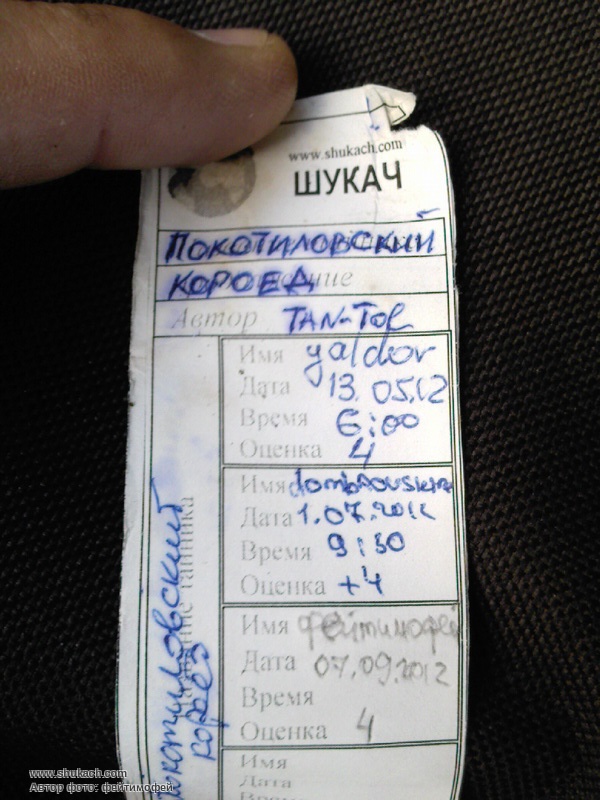 www.shukach.com
ШУКАЧ
ПОКОТИЛОВСКИЙ
КОРОЕД
Автор TAN-TOL
Имя yaldor
Дата 13.05.12
Время 6:00
Оценка 4
Имя dombrovskiy
Дата 1.07.2012
Время 9:30
Оценка +4
Имя фейтимофей
Дата 07.09.2012
Время
Оценка 4
Имя
Дата
Время
Название тайника
Покотиловский
короед
www.shukach.com
Автор фото: фейтимофей